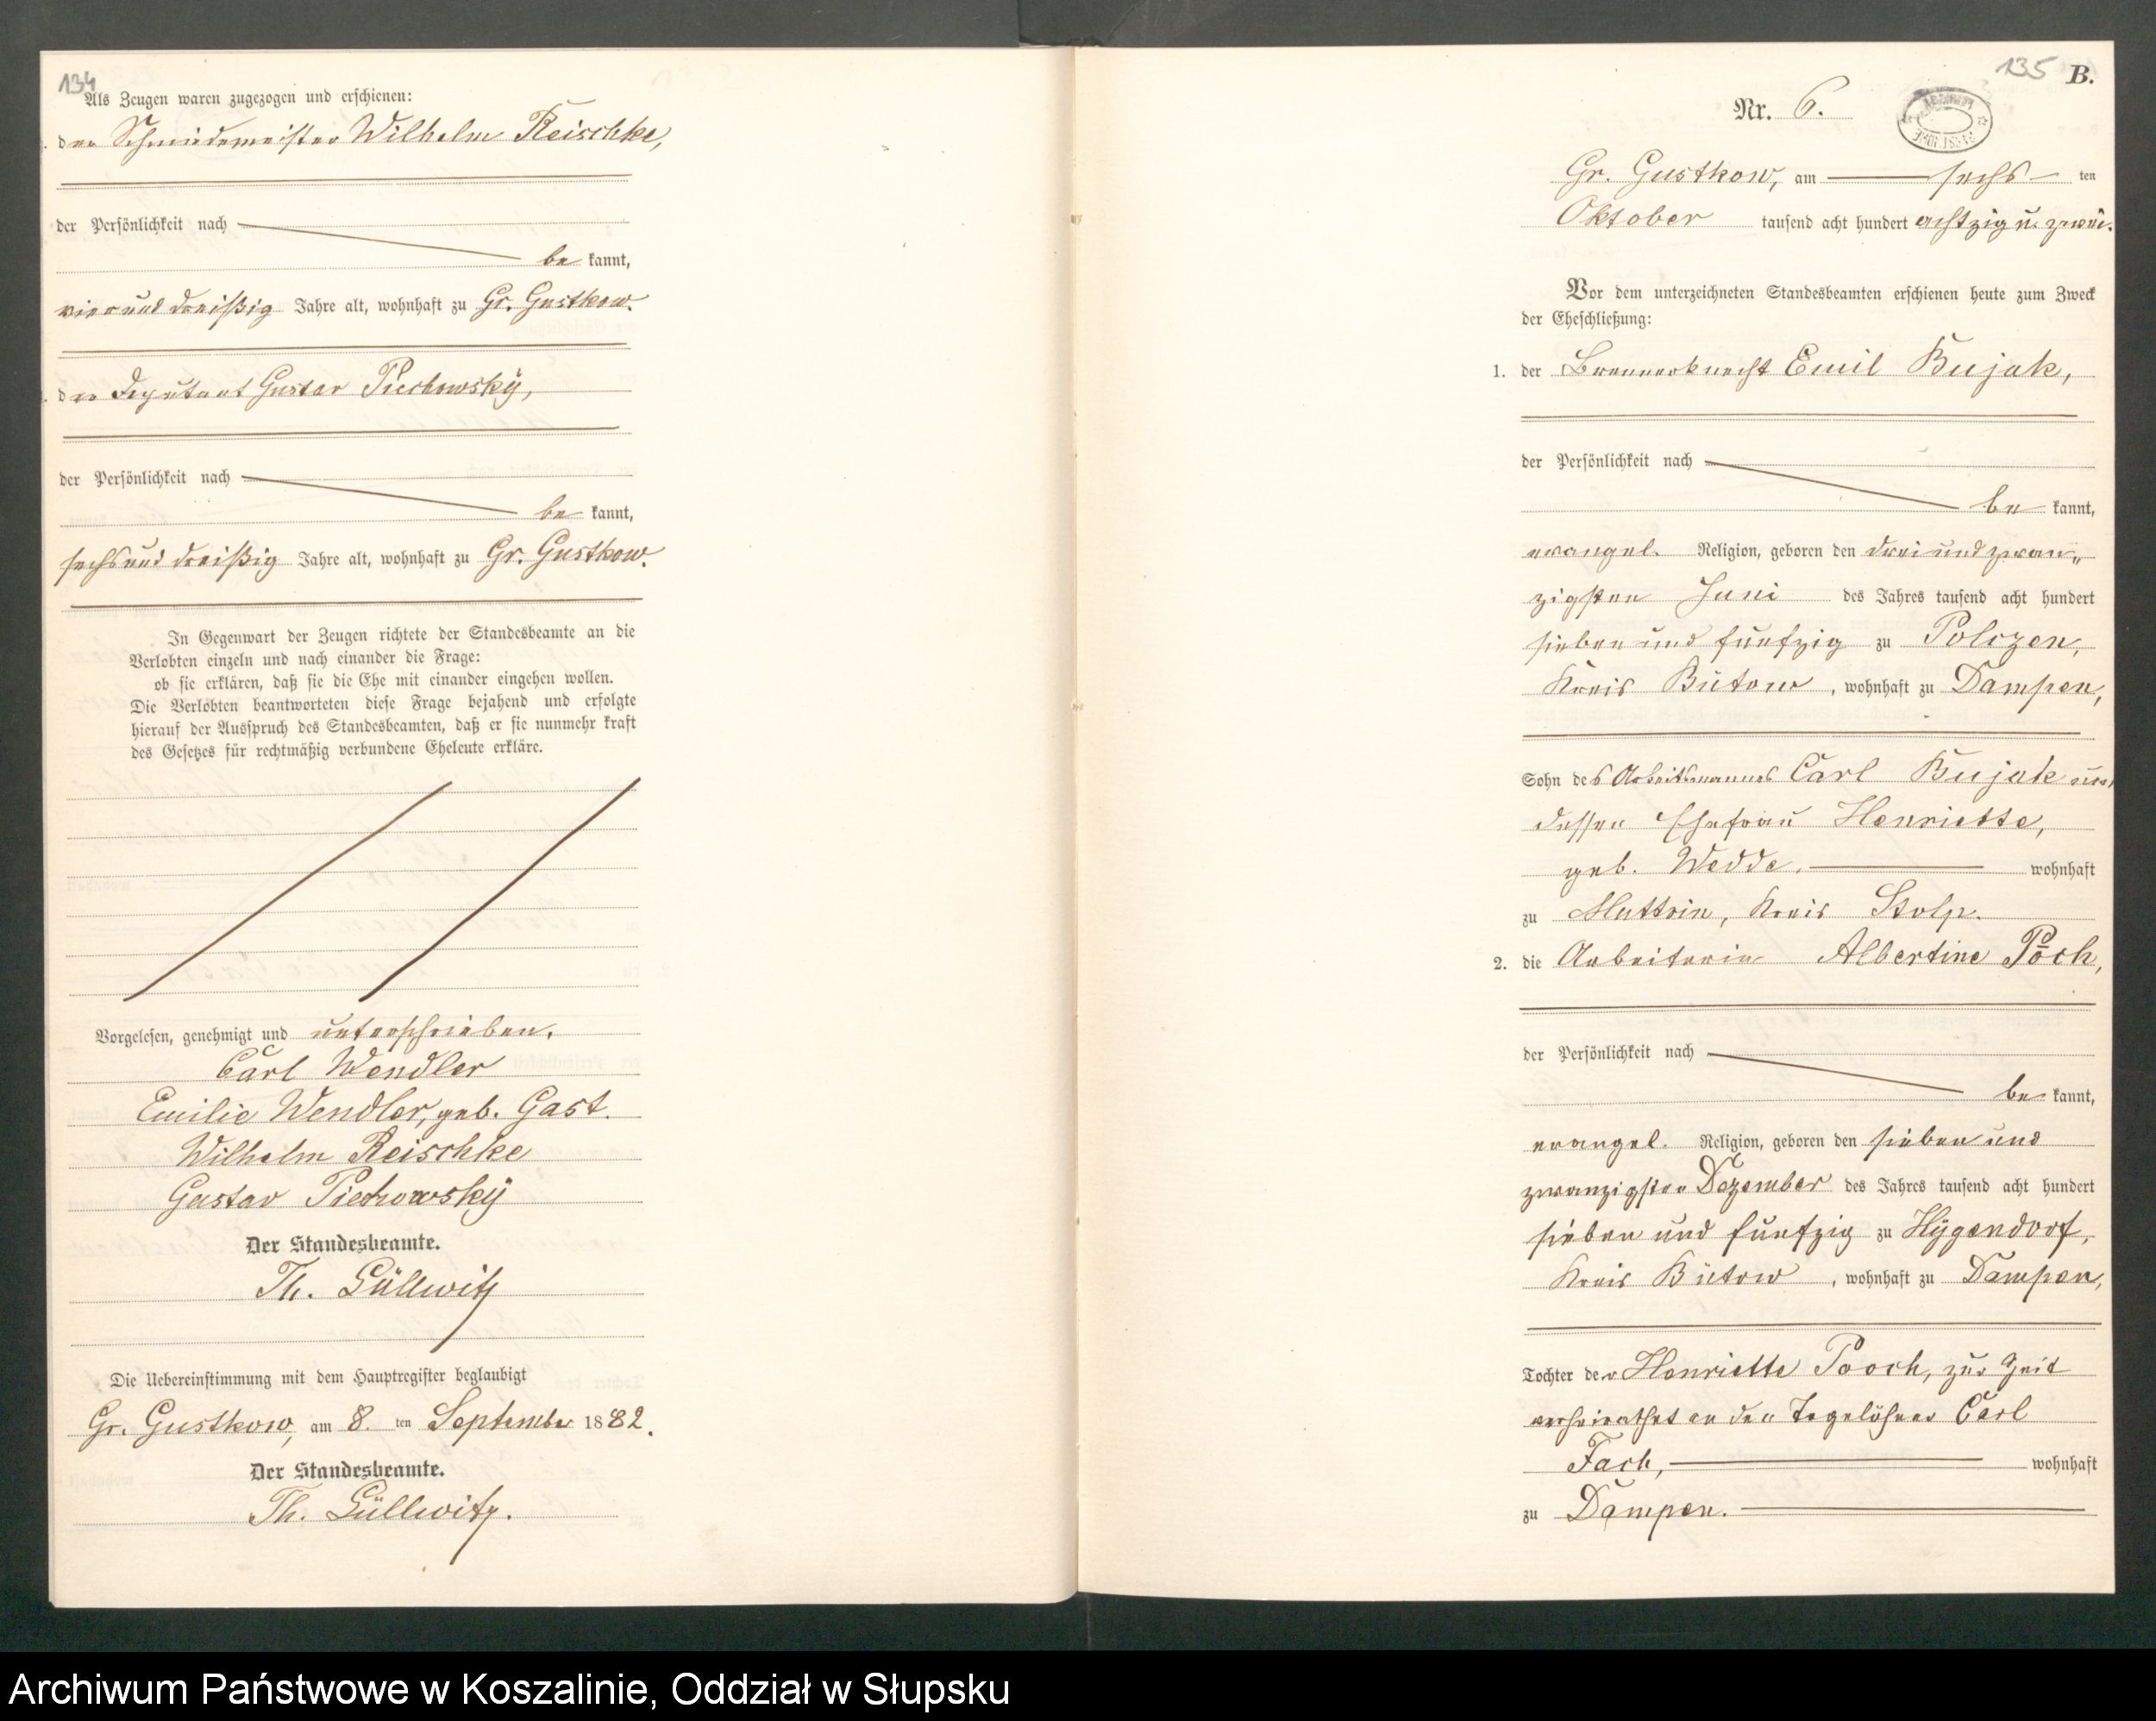 134
Als Zeugen waren zugezogen und erschienen:
der Schmiedemeister Wilhelm Reischke,
der Persönlichkeit nach
be kannt,
vier und dreißig Jahre alt, wohnhaft zu Gr. Gustkow.
der Deputant Gustav Piechowsky,
der Persönlichkeit nach
be kannt,
sechs und dreißig Jahre alt, wohnhaft zu Gr. Gustkow.
In Gegenwart der Zeugen richtete der Standesbeamte an die
Verlobten einzeln und nach einander die Frage:
ob sie erklären, daß sie die Ehe mit einander eingehen wollen.
Die Verlobten beantworteten diese Frage bejahend und erfolgte
hierauf der Ausspruch des Standesbeamten, daß er sie nunmehr kraft
des Gesetzes für rechtmäßig verbundene Eheleute erkläre.
Vorgelesen, genehmigt und unterschrieben.
Carl Wendler
Emilie Wendler, geb. Gast.
Wilhelm Reischke
Gustav Piechowsky
Der Standesbeamte.
Th. Güllwitz
Die Uebereinstimmung mit dem Hauptregister beglaubigt
Gr. Gustkow, am 8. ten September 1882.
Der Standesbeamte.
Th. Güllwitz.
135 B.
Nr. 6.
Gr. Gustkow, am sechs ten
Oktober tausend acht hundert achtzig u. zwei.
Vor dem unterzeichneten Standesbeamten erschienen heute zum Zweck
der Eheschließung:
1. der Brennerknecht Emil Bujak,
der Persönlichkeit nach
be kannt,
evangel. Religion, geboren den drei und zwan„
zigsten Juni des Jahres tausend acht hundert
sieben und fünfzig zu Polczen,
Kreis Bütow, wohnhaft zu Dampen,
Sohn des Arbeitsmannes Carl Bujak und
dessen Ehefrau Henriette,
geb. Wedde, wohnhaft
zu Muttrin, Kreis Stolp.
2. die Arbeiterin Albertine Pooch,
der Persönlichkeit nach
be kannt,
evangel. Religion, geboren den sieben und
zwanzigsten Dezember des Jahres tausend acht hundert
sieben und fünfzig zu Hygendorf,
Kreis Bütow, wohnhaft zu Dampen,
Tochter der Henriette Pooch, zur Zeit
verheirathet an den Tagelöhner Carl
Fach, wohnhaft
zu Dampen.
Archiwum Państwowe w Koszalinie, Oddział w Słupsku